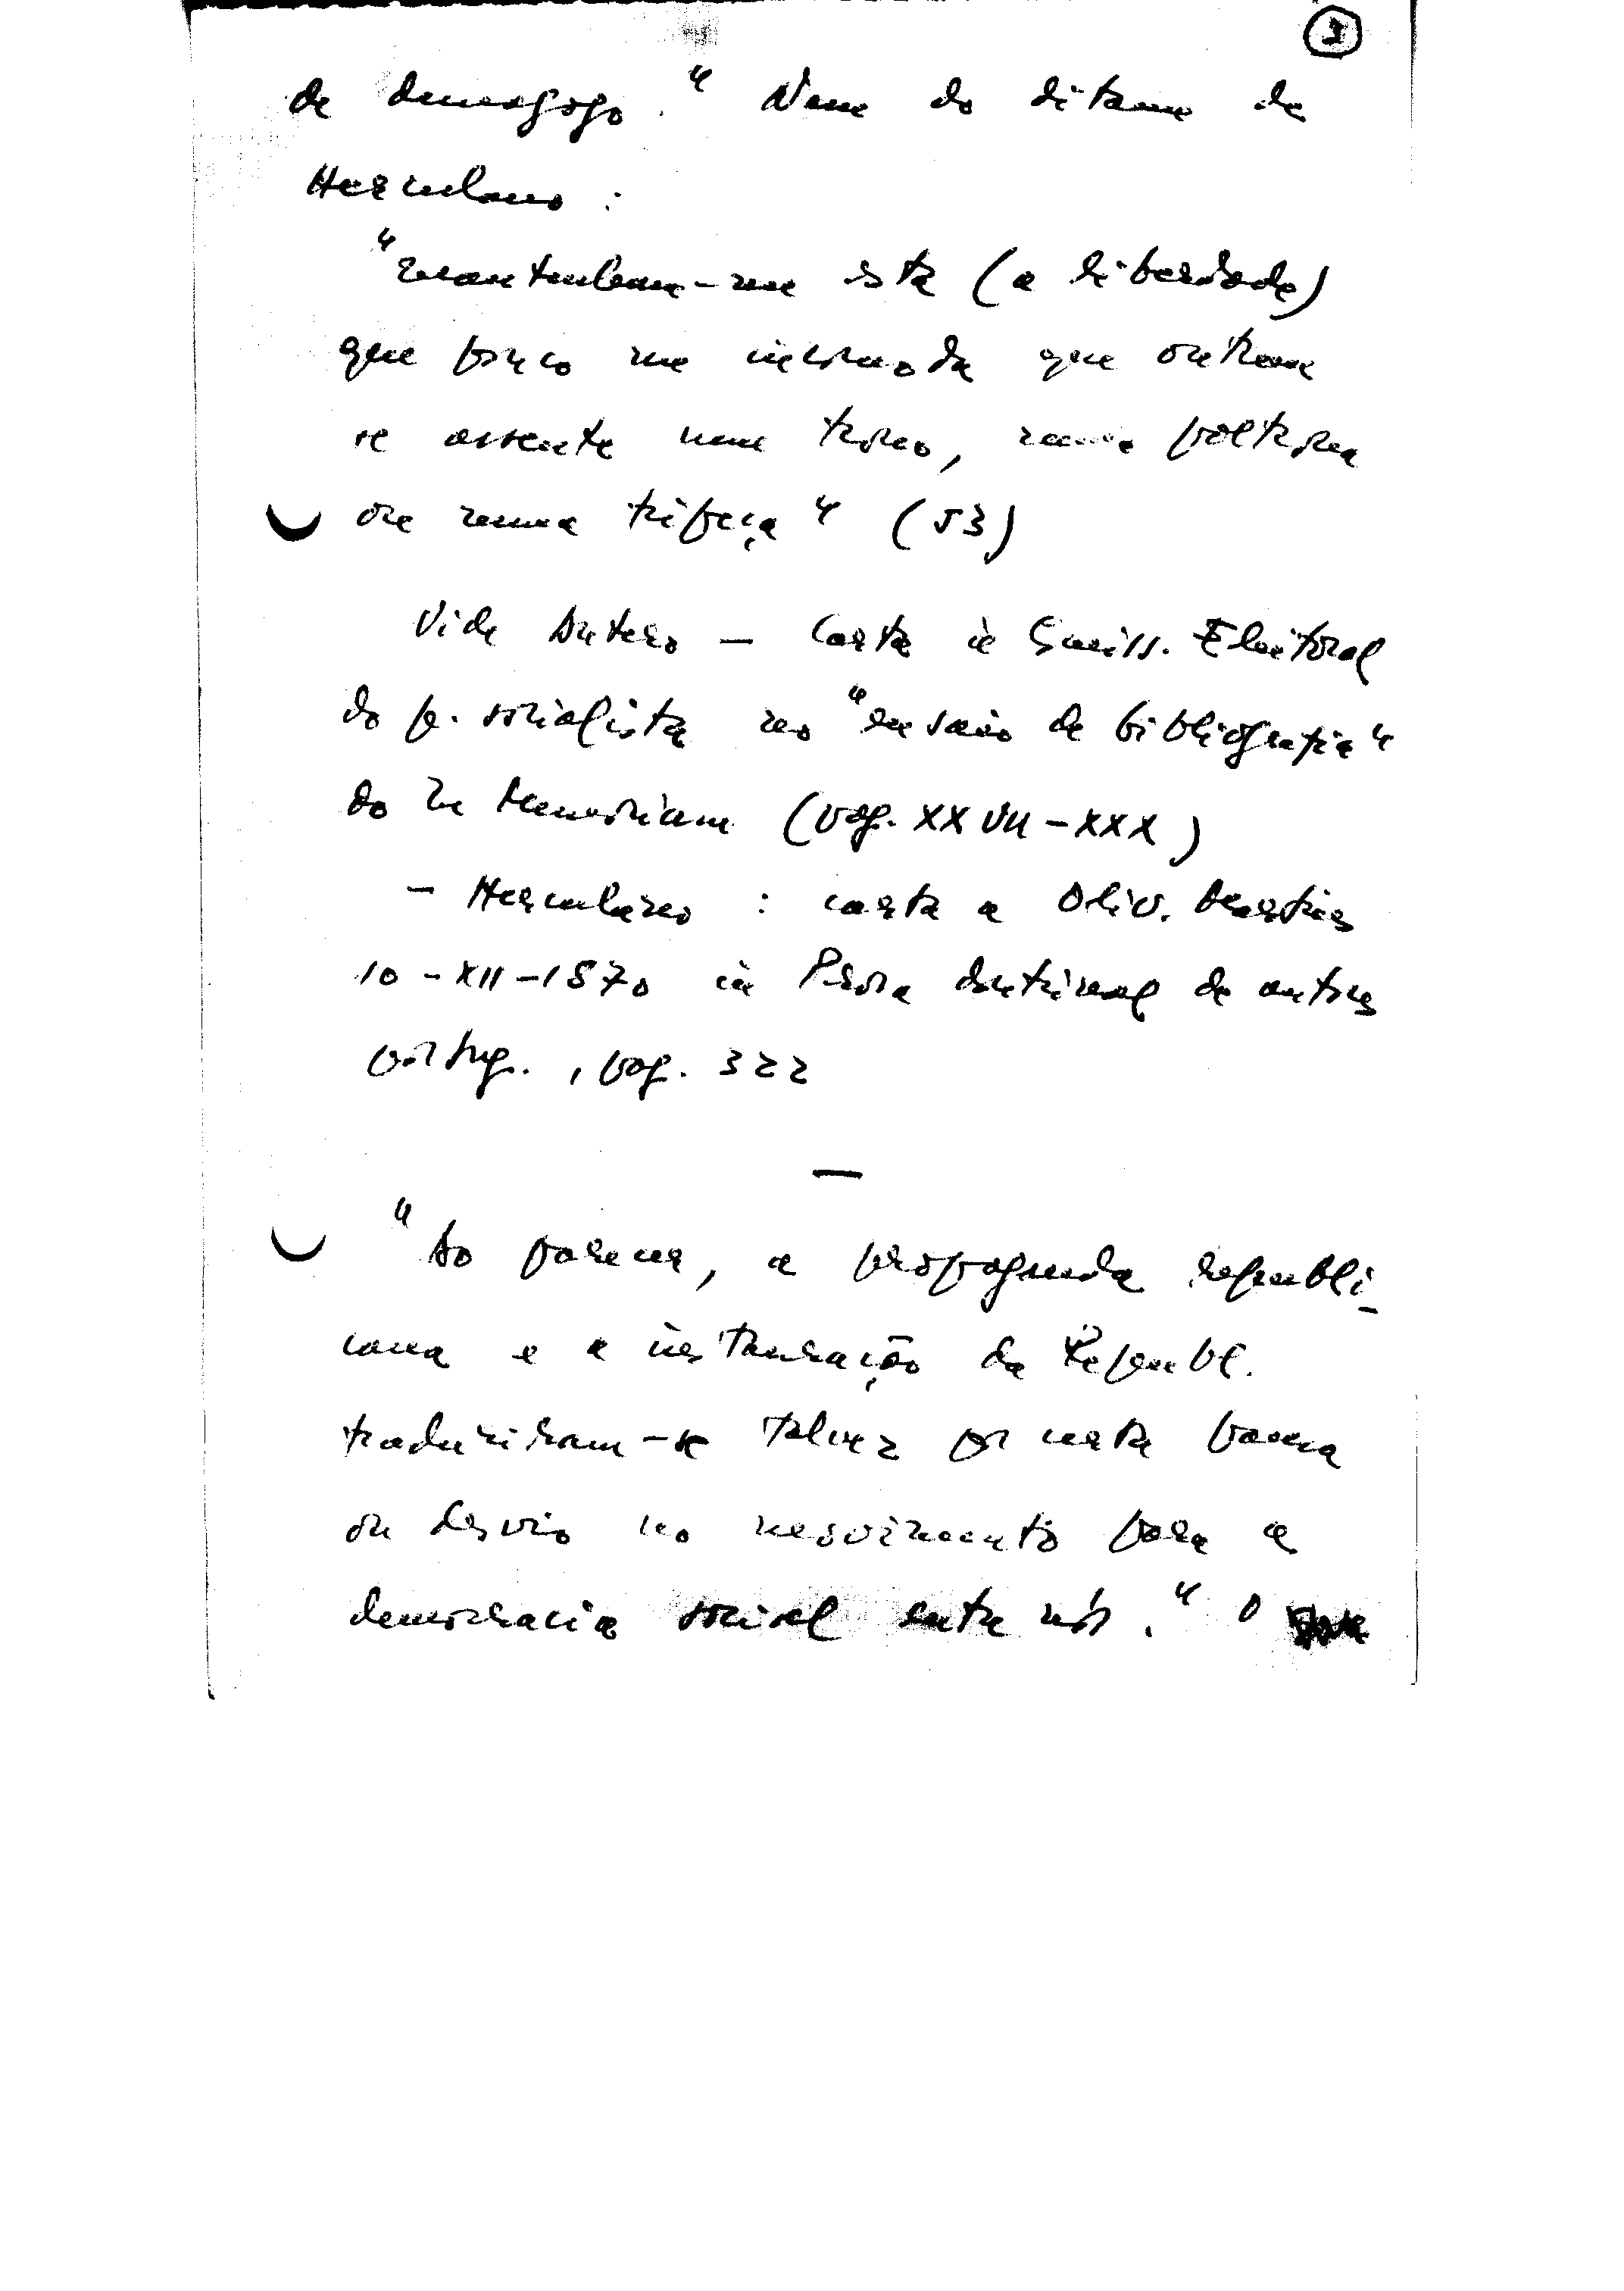 3
de demagogo." Nem do ditame de
Herculano :
"mantenham-me esta (a liberdade)
que pouco me incomoda que outrem
se assente num trono, numa poltrona
ou numa tripeça" (53)
Vide Antero – Carta à Comiss. Eleitoral
do p. socialista no "ensaio de bibliografia"
do In Memoriam (pag. XXVII – XXX)
– Herculano : carta a Oliv. Martins
10 – XII – 1870 in Prosa doutrinal de autores
portug., pag. 322
—
"Ao parecer, a propaganda republi-
cana e a instauração da Républ.
traduziram-se talvez por certa pausa
ou desvio no movimento para a
democracia social entre nós." O